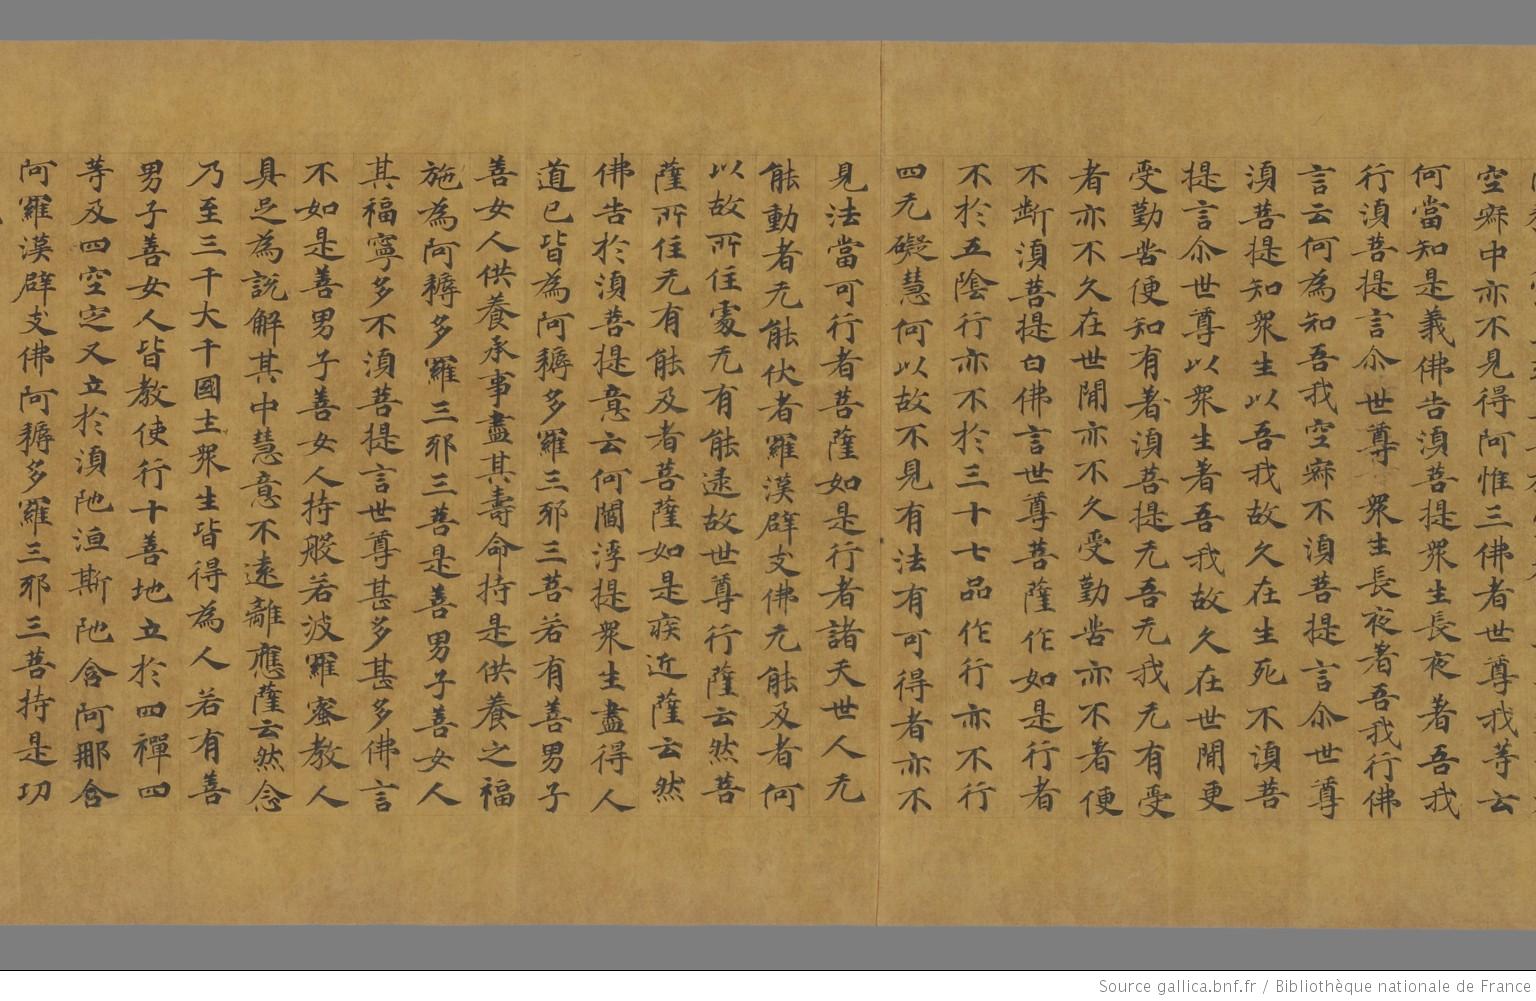 空㝱中亦不見得阿惟三佛者世尊我等云
何當知是義佛告湏菩提衆生長夜著吾我
行湏菩提言尒世尊衆生長夜著吾我行佛
言云何為知吾我空㝱不湏菩提言尒世尊
湏菩提知衆生以吾我故久在生死不湏菩
提言尒世尊以衆生著吾我故久在世閒更
受勤苦便知有著湏菩提无吾无我无有受
者亦不久在世閒亦不久受勤苦亦不著便
不断湏菩提白佛言世尊菩薩作如是行者
不於五陰行亦不於三十七品作行亦不行
四无礙慧何以故不見有法有可得者亦不
見法當可行者菩薩如是行者諸天世人无
能動者无能伏者羅漢辟支佛无能及者何
以故所住䖏无有能逮故世尊行薩云然菩
薩所住无有能及者菩薩如是疾近薩云然
佛告於湏菩提意云何閻浮提衆生盡得人
道已皆為阿耨多羅三邪三菩若有善男子
善女人供養承事盡其壽命持是供養之福
施為阿耨多羅三邪三菩是善男子善女人
其福寧多不湏菩提言世尊甚多甚多佛言
不如是善男子善女人持般若波羅蜜教人
具足為說解其中慧意不遠離應薩云然念
乃至三千大千國土衆生皆得為人若有善
男子善女人皆教使行十善地立於四禪四
等及四空定又立於湏陁洹斯陁含阿那含
阿羅漢辟支佛阿耨多羅三邪三菩持是功